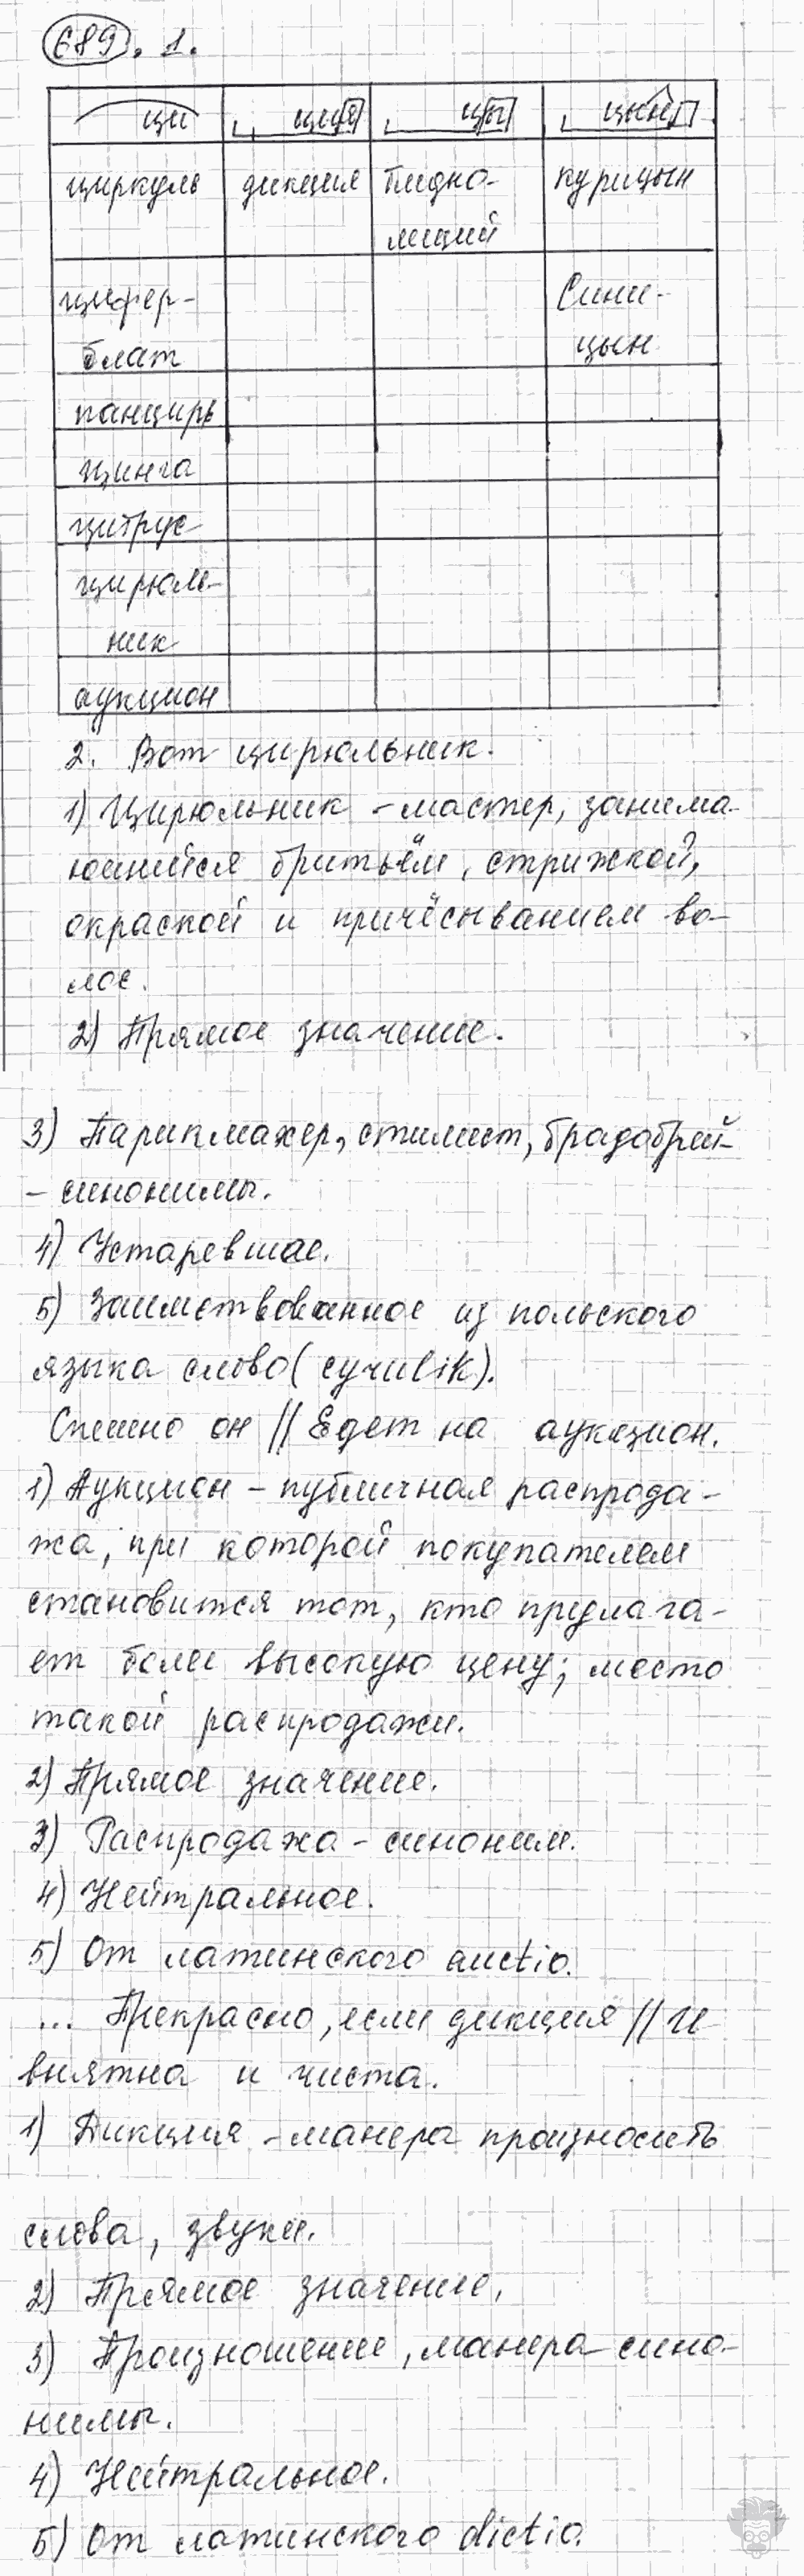 689. 1.
ци ция цы цын
циркуль дикция бледно- курицын
лицый
цифер- Сини-
блат цын
панцирь
цинга
цитрус
цирюль-
ник
аукцион
2. Вот цирюльник.
1) Цирюльник - мастер, занима-
ющийся бритьём, стрижкой,
окраской и причёсыванием во-
лос.
2) Прямое значение.
3) Парикмахер, стилист, брадобрей-
- синонимы.
4) Устаревшее.
5) Заимствованное из польского
языка слово (cyrulik).
Спешно он // Едет на аукцион.
1) Аукцион - публичная распрода-
жа, при которой покупателем
становится тот, кто предлага-
ет более высокую цену; место
такой распродажи.
2) Прямое значение.
3) Распродажа - синоним.
4) Нейтральное.
5) От латинского auctio.
... Прекрасно, если дикция // И
внятна и чиста.
1) Дикция - манера произносить
слова, звуки.
2) Прямое значение.
3) Произношение, манера - сино-
нимы.
4) Нейтральное.
5) От латинского dictio.